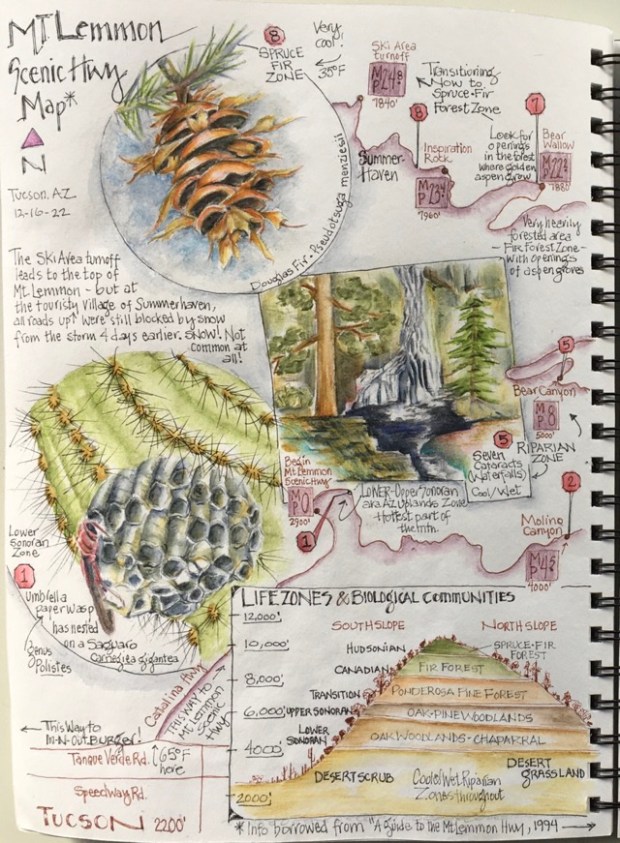 Mt Lemmon
Scenic Hwy
Map*
N
Tucson, AZ
12-16-22
8
SPRUCE
FIR
ZONE
Very
cool!
35°F
Douglas Fir - Pseudotsuga menziesii
Ski Area
turnoff
MP 24.8
7840'
Transitioning
Now to
Spruce-Fir
Forest Zone
Summer-
Haven
8
Inspiration
Rock
MP 23.4
7960'
Look for
openings
in the forest
where golden
aspen grew
7
Bear
Wallow
MP 22.2
7880'
Very heavily
forested area
- Fir Forest Zone -
with openings
of aspen groves
The Ski Area turnoff
leads to the top of
Mt Lemmon - but at
the touristy village of Summerhaven,
all roads "up" were still blocked by snow
from the storm 4 days earlier. SNOW! Not
common at
all!
5
Bear Canyon
MP 8
5000'
RIPARIAN
ZONE
5
Seven
Cataracts
(Waterfalls)
Cool/Wet
Begin
Mt Lemmon
Scenic Hwy
MP 0
2900'
1
LOWER-Upper Sonoran
aka AZ Uplands Zone
Hottest part of
the mtn.
2
Molino
Canyon
MP 4.5
4000'
Lower
Sonoran
Zone
1
Umbrella
paper wasp
has nested
on a Saguaro
Carnegiea gigantea
genus
Polistes
Catalina Hwy
THIS WAY TO
Mt Lemmon
Scenic
Hwy
This Way to
IN-N-OUT BURGER!
Tanque Verde Rd.
65°F
here
Speedway Rd.
TUCSON 2200'
LIFE ZONES & BIOLOGICAL COMMUNITIES
12,000'
10,000'
8,000'
6,000'
4000'
2000'
SOUTH SLOPE
NORTH SLOPE
HUDSONIAN
SPRUCE-FIR
FOREST
CANADIAN
FIR FOREST
TRANSITION
PONDEROSA PINE FOREST
UPPER SONORAN
OAK-PINE WOODLANDS
LOWER
SONORAN
OAK WOODLANDS-CHAPARRAL
DESERT SCRUB
Cool & Wet Riparian
Zones throughout
DESERT
GRASSLAND
*Info borrowed from "A Guide to the Mt Lemmon Hwy, 1994